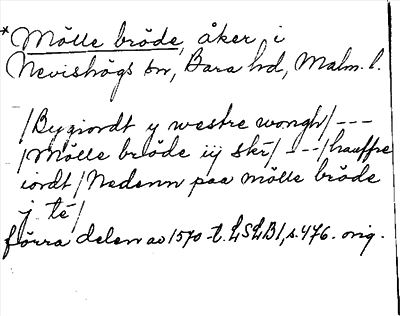 *Mölle bröde, åker i
Nevishögs sn, Bara hd, Malm. l.
/Bygiordt y westre wongh/---
/Mölle bröde iij skr/---/hauffre
iordt/Nedenn paa mölle bröde
j tė/
förra delen av 1570-t. LSLB1, s. 476. orig.